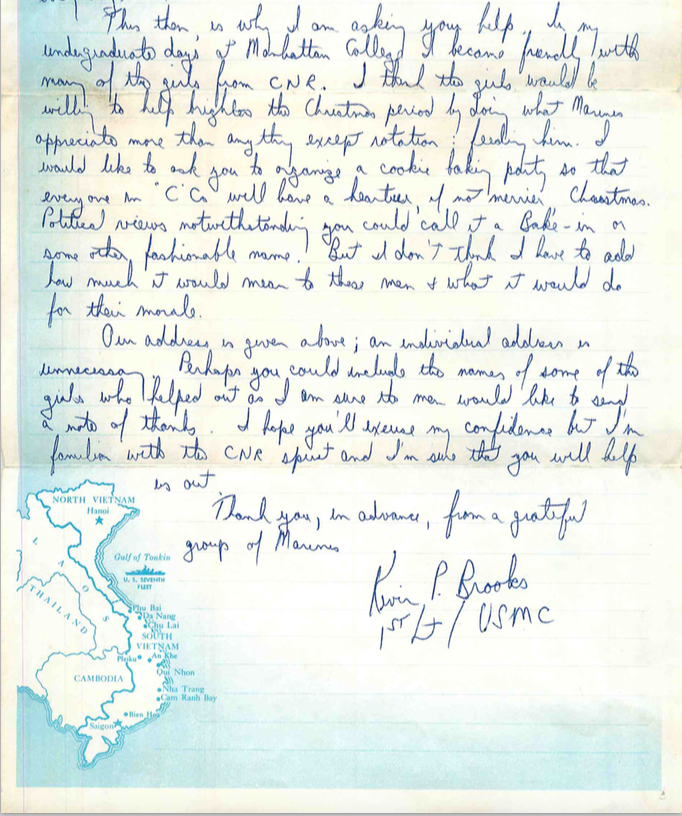 This then, is why I am asking your help. In my
undergraduate days at Manhattan College I became friendly with
many of the girls from CNR. I think the girls would be
willing to help brighten the Christmas period by doing what Marines
appreciate more than anything except rotation: feeding him. I
would like to ask you to organize a cookie baking party so that
everyone in "C" Co will have a heartier, if not merrier Christmas.
Political views notwithstanding you could call it a Bake-in or
some other fashionable name. But I don't think I have to add
how much it would mean to these men & what it would do
for their morale.
Our address is given above; an individual address is
unnecessary. Perhaps you could include the names of some of the
girls who helped out as I am sure the men would like to send
a note of thanks. I hope you'll excuse my confidence but I'm
familiar with the CNR spirit and I'm sure that you will help
us out.
Thank you, in advance, from a grateful
group of Marines
Kevin P. Brooks
1st Lt / USMC
NORTH VIETNAM
Hanoi
LAOS
Gulf of Tonkin
U. S. SEVENTH
FLEET
THAILAND
Phu Bai
Da Nang
Chu Lai
SOUTH
VIETNAM
Pleiku
An Khe
Qui Nhon
CAMBODIA
Nha Trang
Cam Ranh Bay
Bien Hoa
Saigon